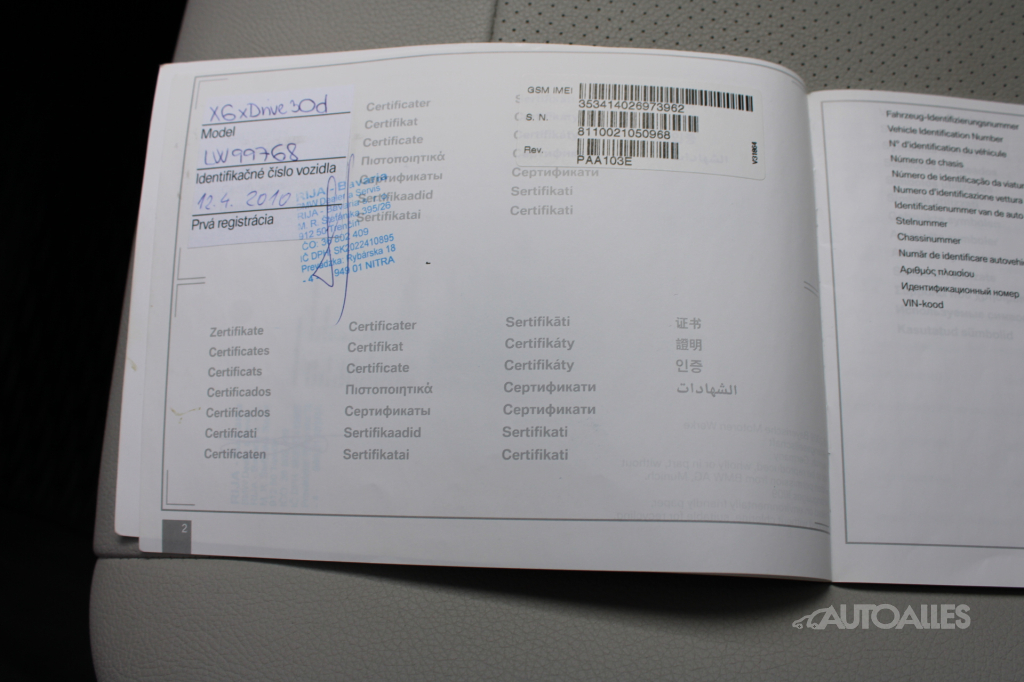 X6 xDrive 30d
Model
LW99768
Identifikačné číslo vozidla
12.4. 2010
Prvá registrácia
M. R. Štefánika 395/26
912 50 Trenčín
IČ DPH: SK2022410895
Prevádzka: Rybárska 18
949 01 NITRA
Certificater
Certifikat
Certificate
Πιστοποιητικά
Сертификаты
Sertifikaadid
Sertifikatai
Сертификати
Sertifikati
Certifikati
GSM IMEI
353414026973962
S. N.
8110021050968
Rev.
PAA103E
Zertifikate
Certificates
Certificats
Certificados
Certificados
Certificati
Certificaten
Certificater
Certifikat
Certificate
Πιστοποιητικά
Сертификаты
Sertifikaadid
Sertifikatai
Sertifikāti
Certifikáty
Certifikáty
Сертификати
Сертификати
Sertifikati
Certifikati
证书
證明
인증
الشهادات
2
Fahrzeug-Identifizierungsnummer
Vehicle Identification Number
N° d'identification du véhicule
Número de chasis
Número de identificação da viatura
Numero d'identificazione vettura
Identificatienummer van de auto
Stelnummer
Chassinummer
Număr de identificare
Αριθμός πλαισίου
Идентификационный номер
VIN-kood
AUTOALLES